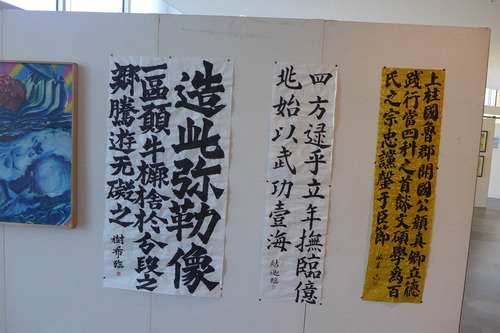 上柱國魯郡開國公顏真卿立德
踐行當四科之首懿文碩學為百
氏之宗忠讜罄于臣節
四方逮乎立年撫臨億
兆始以武功壹海
臨
造此弥勒像
一區願牛橛捨於分段之
鄉騰遊无礙之
樹希臨